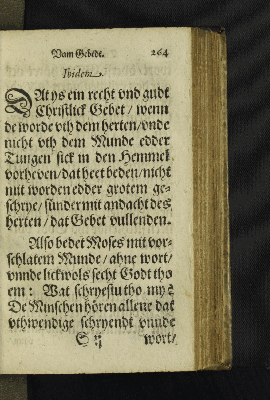 Vam Gebede. 264
Ibidem.
DAt ys ein recht vnd gudt
Christlick Gebet / wenn
de worde vth dem herten / vnde
nicht vth dem Munde edder
Tungen sick in den Hemmel
vorheven / dat heet beden / nicht
mit worden edder grotem ge-
schrye / sünder mit andacht des
herten / dat Gebet vullenden.
Also bedet Moses mit vor-
schlatem Munde / ahne wort /
vnnde lickwols secht Godt tho
em: Wat schryestu tho my?
De Minschen hören allene dat
vthwendige schryendt vnnde
wort /